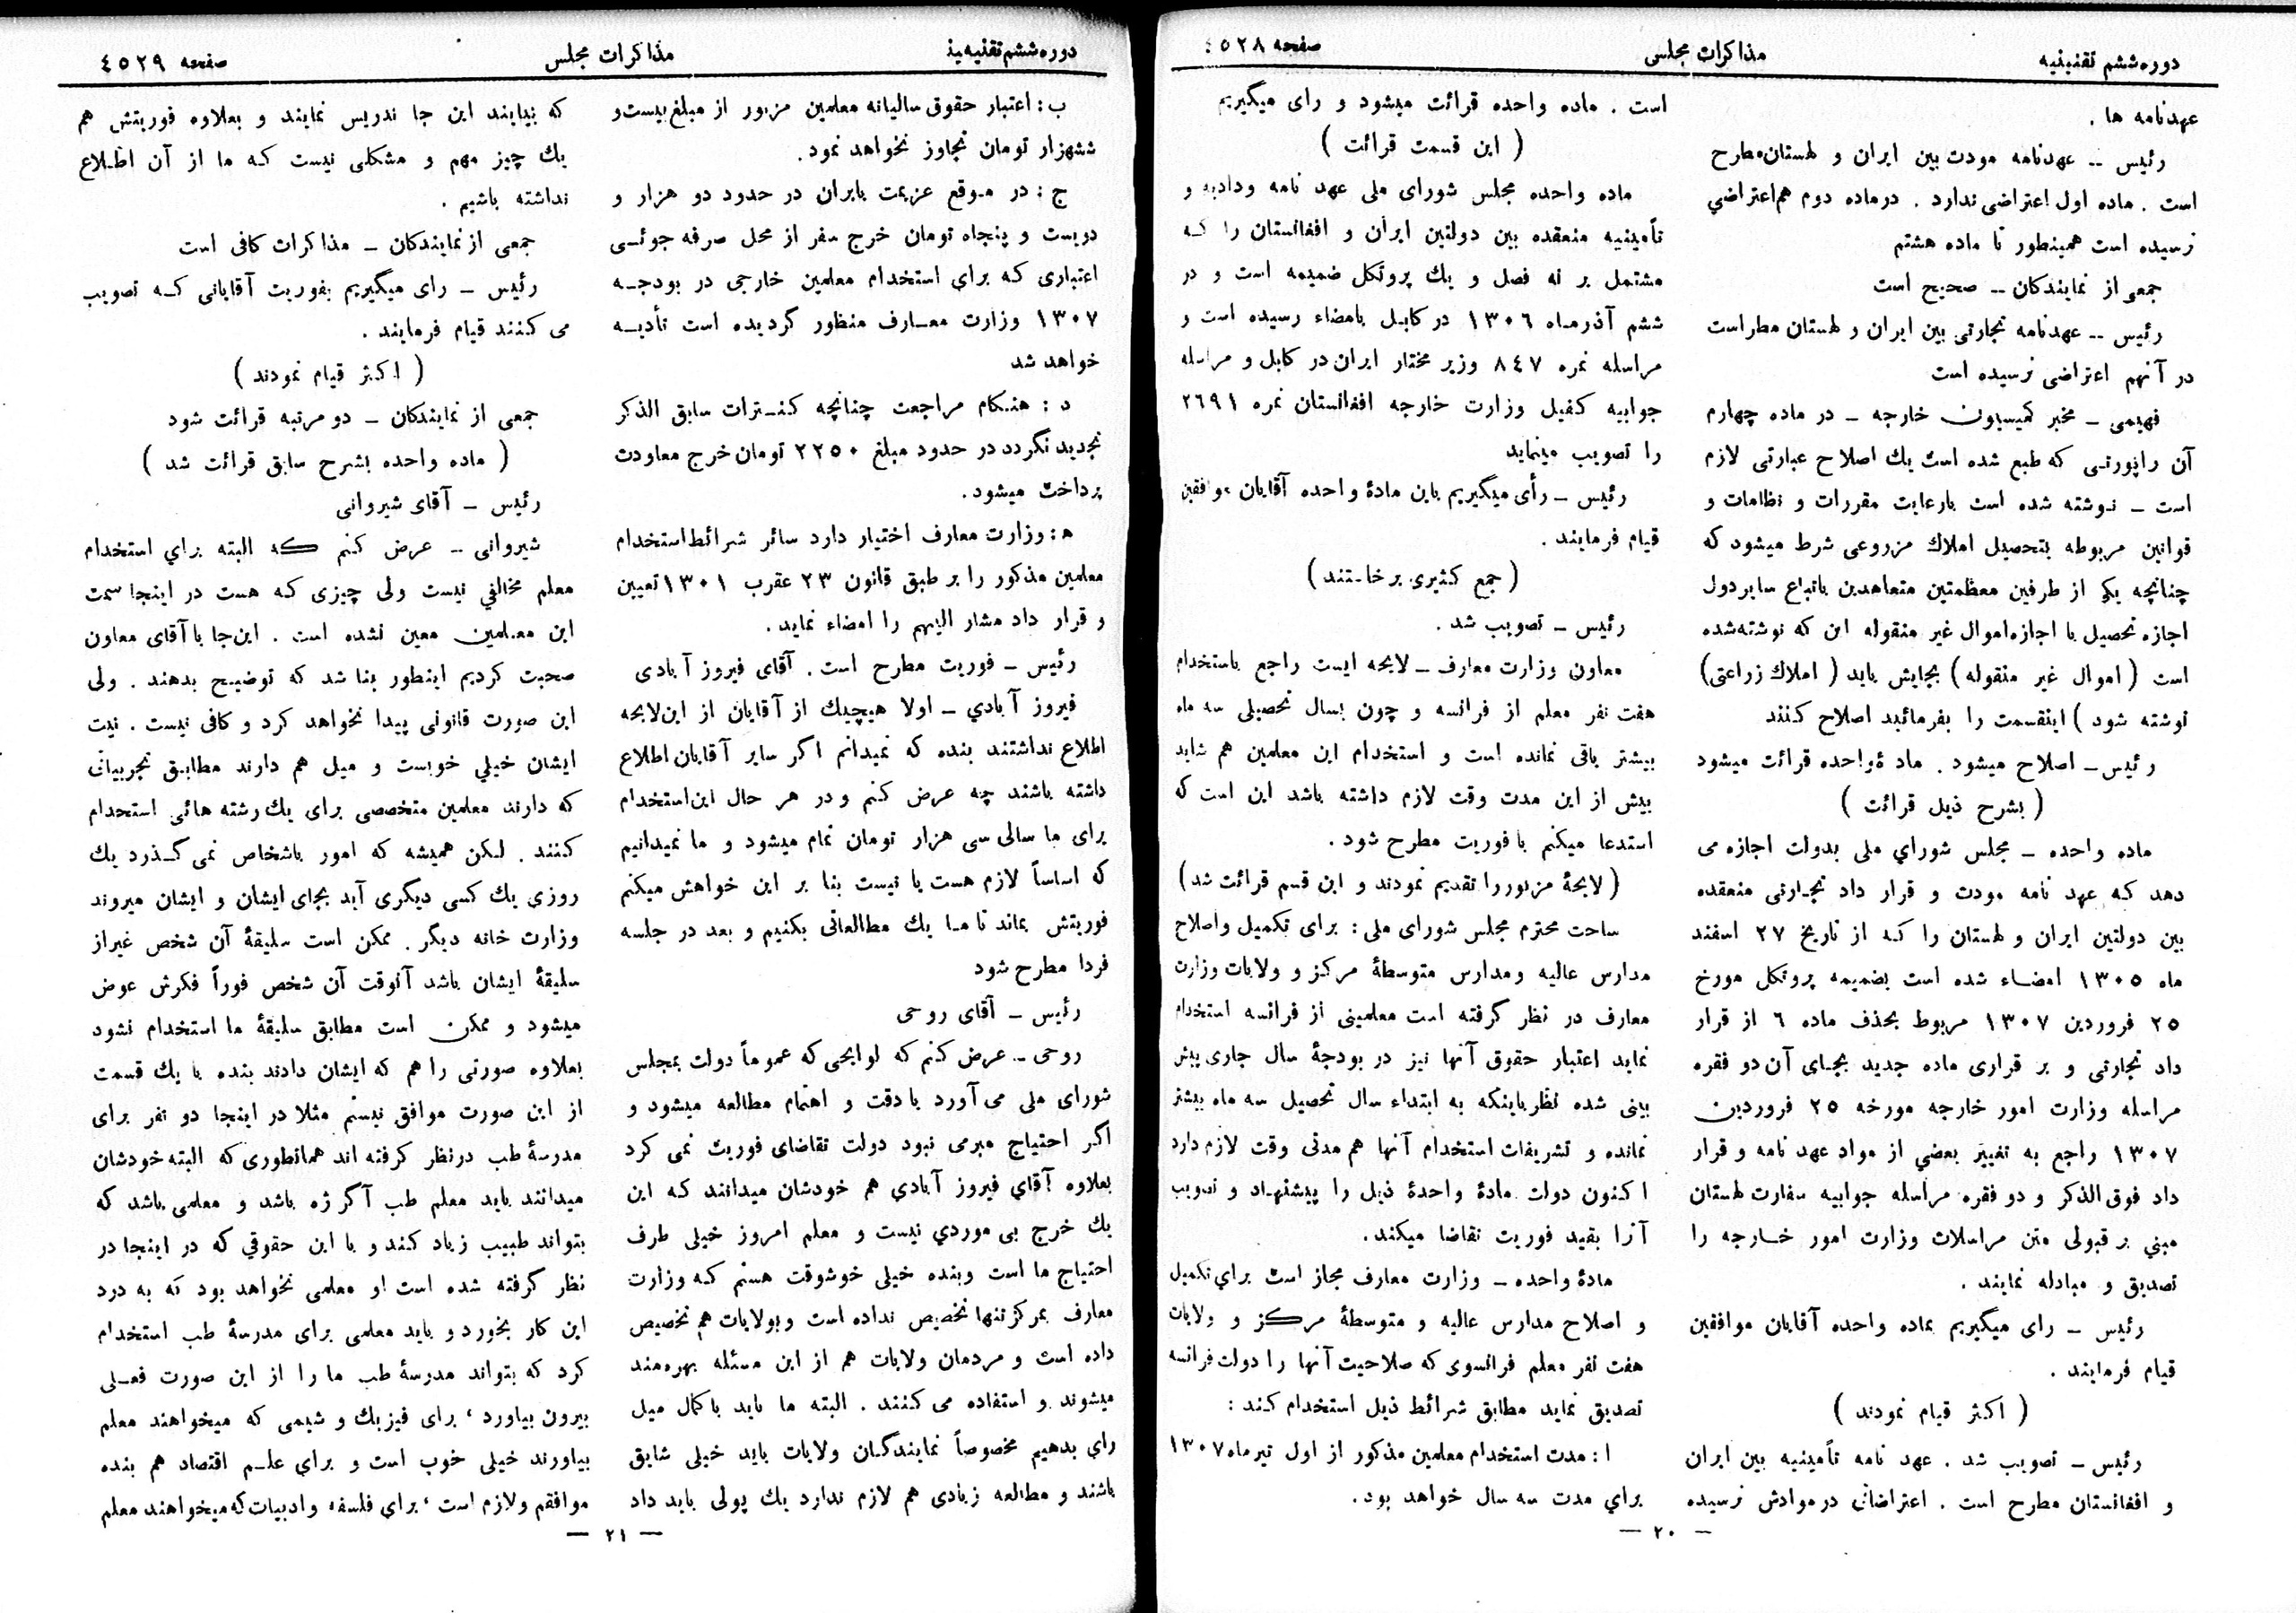 دوره ششم تقنینیه
مذاکرات مجلس
صفحه ٤٥٢٨
عهدنامه ها .
رئیس ــ عهدنامه مودت بین ایران و لهستان مطرح
است . ماده اول اعتراضی ندارد . درماده دوم هم اعتراضی
نرسیده است همینطور تا ماده هشتم
جمعی از نمایندکان ــ صحیح است
رئیس ــ عهدنامه تجارتی بین ایران و لهستان مطر است
در آنهم اعتراضی نرسیده است
فهیمی ــ مخبر کمیسیون خارجه ــ در ماده چهارم
آن راپورتی که طبع شده است یك اصلاح عبارتی لازم
است ــ نوشته شده است بارعایت مقررات و نظامات و
قوانین مربوطه بتحصیل املاك مزروعی شرط میشود که
چنانچه یکی از طرفین معظمتین متعاهدین باتباع سایر دول
اجازه تحصیل با اجازه اموال غیر منقوله این که نوشته شده
است ( اموال غیر منقوله ) بجایش باید ( املاك زراعتی )
نوشته شود ) اینقسمت را بفرمائید اصلاح کنند
رئیس ــ اصلاح میشود . مادۀ واحده قرائت میشود
( بشرح ذیل قرائت )
ماده واحده ــ مجلس شورای ملی بدولت اجازه می
دهد که عهد نامه مودت و قرار داد تجارتی منعقده
بین دولتین ایران و لهستان را که از تاریخ ٢٧ اسفند
ماه ١٣٠٥ امضاء شده است بضمیمه پروتکل مورخ
٢٥ فروردین ١٣٠٧ مربوط بحذف ماده ٦ از قرار
داد تجارتی و بر قراری ماده جدید بجای آن دو فقره
مراسله وزارت امور خارجه مورخه ٢٥ فروردین
١٣٠٧ راجع به تغییر بعضی از مواد عهد نامه و قرار
داد فوق الذکر و دو فقره مراسله جوابیه سفارت لهستان
مبنی بر قبولی متن مراسلات وزارت امور خارجه را
تصدیق و مبادله نمایند .
رئیس ــ رای میگیریم بماده واحده آقایان موافقین
قیام فرمایند .
( اکثر قیام نمودند )
رئیس ــ تصویب شد . عهد نامه تأمینیه بین ایران
و افغانستان مطرح است . اعتراضاتی در موادش نرسیده
است . ماده واحده قرائت میشود و رای میگیریم
( این قسمت قرائت )
ماده واحده مجلس شورای ملی عهد نامه ودادیه و
تأمینیه منعقده بین دولتین ایران و افغانستان را که
مشتمل بر نه فصل و یك پروتکل ضمیمه است و در
ششم آذرماه ١٣٠٦ در کابل بامضاء رسیده است و
مراسله نمره ٨٤٧ وزیر مختار ایران در کابل و مراسله
جوابیه کفیل وزارت خارجه افغانستان نمره ٢٦٩١
را تصویب مینماید
رئیس ــ رأی میگیریم باین مادۀ واحده آقایان موافقین
قیام فرمایند .
( جمع کثیری برخاستند )
رئیس ــ تصویب شد .
معاون وزارت معارف ــ لایحه ایست راجع باستخدام
هفت نفر معلم از فرانسه و چون بسال تحصیلی سه ماه
بیشتر باقی نمانده است و استخدام این معلمین هم شاید
بیش از این مدت وقت لازم داشته باشد این است که
استدعا میکنم با فوریت مطرح شود .
( لایحۀ مزبور را تقدیم نمودند و این قسم قرائت شد )
ساحت محترم مجلس شورای ملی : برای تکمیل و اصلاح
مدارس عالیه و مدارس متوسطۀ مرکز و ولایات وزارت
معارف در نظر گرفته است معلمینی از فرانسه استخدام
نماید اعتبار حقوق آنها نیز در بودجۀ سال جاری پیش
بینی شده نظر باینکه به ابتداء سال تحصیل سه ماه بیشتر
نمانده و تشریفات استخدام آنها هم مدتی وقت لازم دارد
اکنون دولت مادۀ واحدۀ ذیل را پیشنهاد و تصویب
آنرا بقید فوریت تقاضا میکند .
مادۀ واحده ــ وزارت معارف مجاز است برای تکمیل
و اصلاح مدارس عالیه و متوسطۀ مرکز و ولایات
هفت نفر معلم فرانسوی که صلاحیت آنها را دولت فرانسه
تصدیق نماید مطابق شرائط ذیل استخدام کند :
ا : مدت استخدام معلمین مذکور از اول تیر ماه ١٣٠٧
برای مدت سه سال خواهد بود .
ــ ٢٠ ــ
دوره ششم تقنینیه
مذاکرات مجلس
صفحه ٤٥٢٩
ب : اعتبار حقوق سالیانه معلمین مزبور از مبلغ بیست و
ششهزار تومان تجاوز نخواهد نمود .
ج : در موقع عزیمت بایران در حدود دو هزار و
دویست و پنجاه تومان خرج سفر از محل صرفه جوئی
اعتباری که برای استخدام معلمین خارجی در بودجه
١٣٠٧ وزارت معارف منظور گردیده است تأدیه
خواهد شد
د : هنکام مراجعت چنانچه کنترات سابق الذکر
تجدید نگردد در حدود مبلغ ٢٢٥٠ تومان خرج معاودت
پرداخت میشود .
ه : وزارت معارف اختیار دارد سائر شرائط استخدام
معلمین مذکور را بر طبق قانون ٢٣ عقرب ١٣٠١ تعیین
و قرار داد مشار الیهم را امضاء نماید .
رئیس ــ فوریت مطرح است . آقای فیروز آبادی
فیروز آبادی ــ اولا هیچیك از آقایان از این لایحه
اطلاع نداشتند بنده که نمیدانم اکر سایر آقایان اطلاع
داشته باشند چه عرض کنم و در هر حال این استخدام
برای ما سالی سی هزار تومان تمام میشود و ما نمیدانیم
که اساساً لازم هست یا نیست بنا بر این خواهش میکنم
فوریتش بماند تا ما یك مطالعاتی بکنیم و بعد در جلسه
فردا مطرح شود
رئیس ــ آقای روحی
روحی ــ عرض کنم که لوایحی که عموماً دولت بمجلس
شورای ملی می آورد با دقت و اهتمام مطالعه میشود و
اگر احتیاج مبرمی نبود دولت تقاضای فوریت نمی کرد
بعلاوه آقای فیروز آبادی هم خودشان میدانند که این
یك خرج بی موردی نیست و معلم امروز خیلی طرف
احتیاج ما است و بنده خیلی خوشوقت هستم که وزارت
معارف بمرکز تنها تخصیص نداده است و بولایات هم تخصیص
داده است و مردمان ولایات هم از این مسئله بهره مند
میشوند و استفاده می کنند . البته ما باید با کمال میل
رای بدهیم مخصوصاً نمایندگان ولایات باید خیلی شایق
باشند و مطالعه زیادی هم لازم ندارد یك پولی باید داد
که بیایند این جا تدریس نمایند و بعلاوه فوریتش هم
یك چیز مهم و مشکلی نیست که ما از آن اطلاع
نداشته باشیم .
جمعی از نمایندکان ــ مذاکرات کافی است
رئیس ــ رای میگیریم بفوریت آقایانی که تصویب
می کنند قیام فرمایند .
( اکثر قیام نمودند )
جمعی از نمایندکان ــ دو مرتبه قرائت شود
( ماده واحده بشرح سابق قرائت شد )
رئیس ــ آقای شیروانی
شیروانی ــ عرض کنم که البته برای استخدام
معلم مخالفی نیست ولی چیزی که هست در اینجا سمت
این معلمین معین نشده است . این جا با آقای معاون
صحبت کردیم اینطور بنا شد که توضیح بدهند . ولی
این صورت قانونی پیدا نخواهد کرد و کافی نیست . نیت
ایشان خیلی خوبست و میل هم دارند مطابق تجربیاتی
که دارند معلمین متخصصی برای یك رشته هائی استخدام
کنند . لکن همیشه که امور باشخاص نمی گذرد یك
روزی یك کسی دیگری آید بجای ایشان و ایشان میروند
وزارت خانه دیگر . ممکن است سلیقۀ آن شخص غیر از
سلیقۀ ایشان باشد آنوقت آن شخص فوراً فکرش عوض
میشود و ممکن است مطابق سلیقۀ ما استخدام نشود
بعلاوه صورتی را هم که ایشان دادند بنده با یك قسمت
از این صورت موافق نیستم مثلا در اینجا دو نفر برای
مدرسۀ طب در نظر کرفته اند همانطوری که البته خودشان
میدانند باید معلم طب آگرژه باشد و معلمی باشد که
بتواند طبیب زیاد کند و با این حقوقی که در اینجا در
نظر گرفته شده است او معلمی نخواهد بود که به درد
این کار بخورد و باید معلمی برای مدرسۀ طب استخدام
کرد که بتواند مدرسۀ طب ما را از این صورت فعلی
بیرون بیاورد ، برای فیزیك و شیمی که میخواهند معلم
بیاورند خیلی خوب است و برای علم اقتصاد هم بنده
موافقم و لازم است ، برای فلسفه و ادبیات که میخواهند معلم
ــ ٢١ ــ